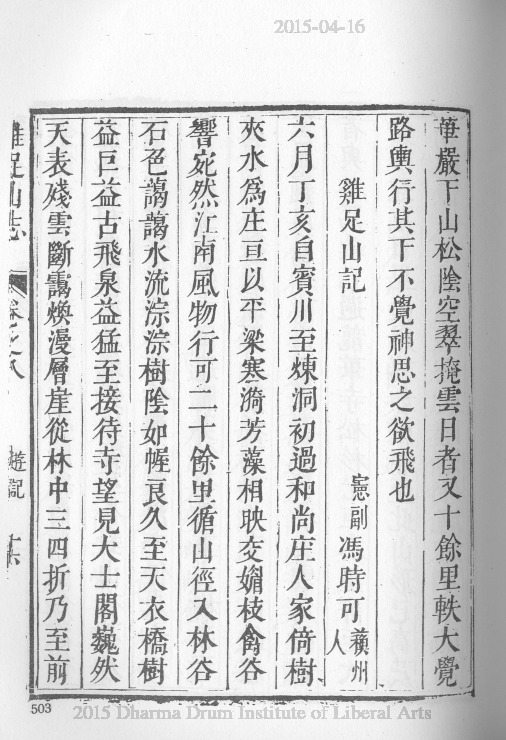 2015-04-16
華嚴下山松陰空翠掩雲日者又十餘里軼大覺
路輿行其下不覺神思之欲飛也
雞足山記
憲副馮時可蘇州人
六月丁亥自賓川至煉洞初過和尚庄人家倚樹
夾水為庄亘以平梁寒漪芳藻相映交媚枝禽谷
響宛然江南風物行可二十餘里循山徑入林谷
石色藹藹水流淙淙樹陰如幄良久至天衣橋樹
益巨益古飛泉益猛至接待寺望見大士閣巍然
天表殘雲斷靄煥漫層崖從林中三四折乃至前
雞足山志
卷之八
遊記
十六
503
2015 Dharma Drum Institute of Liberal Arts